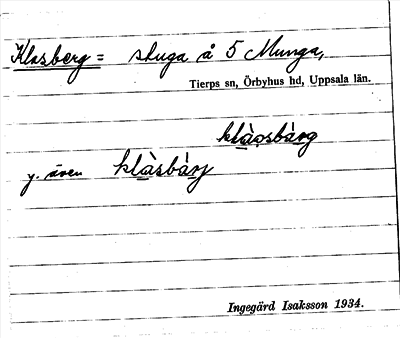 Klasberg = stuga å 5 Munga,
Tierps sn, Örbyhus hd, Uppsala län.
klàsbàrg
y. även klàsbàrj
Ingegärd Isaksson 1934.